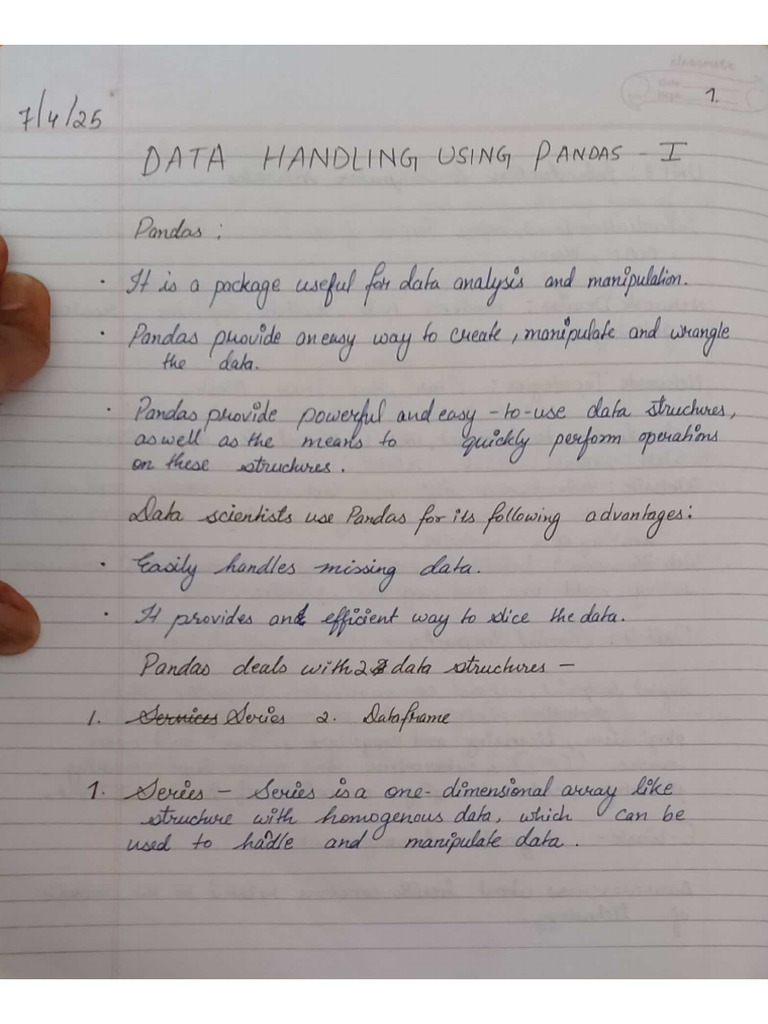 classmate
Date
Page
1.
7/4/25
DATA HANDLING USING PANDAS - I
Pandas :
· It is a package useful for data analysis and manipulation.
· Pandas provide an easy way to create, manipulate and wrangle
the data.
· Pandas provide powerful and easy-to-use data structures,
as well as the means to quickly perform operations
on these structures.
Data scientists use Pandas for its following advantages:
· Easily handles missing data.
· It provides an efficient way to slice the data.
Pandas deals with 2 data structures –
1. Services Series 2. Dataframe
1. Series – Series is a one-dimensional array like
structure with homogenous data, which can be
used to hadle and manipulate data.